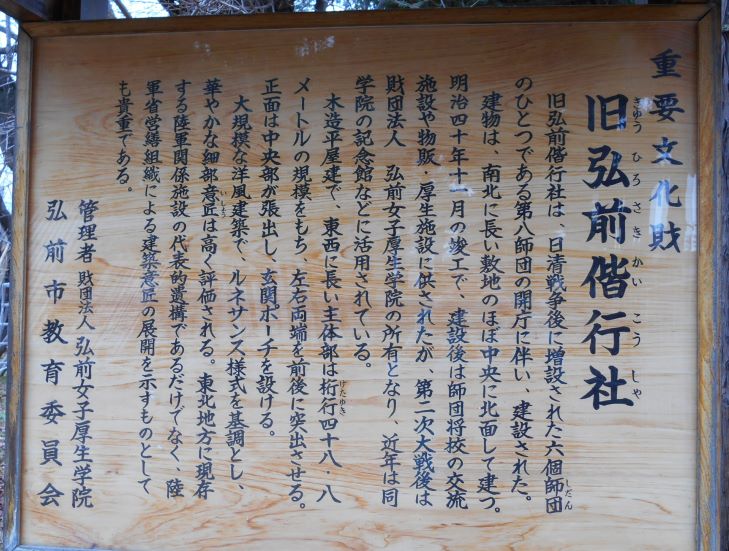 重要文化財
旧弘前偕行社
きゅう ひろ さき かい こう しゃ
旧弘前偕行社は、日清戦争後に増設された六個師団
しだん
のひとつである第八師団の開庁に伴い、建設された。
建物は、南北に長い敷地のほぼ中央に北面して建つ。
明治四十年十一月の竣工で、建設後は師団将校の交流
施設や物販・厚生施設に供されたが、第二次大戦後は
財団法人 弘前女子厚生学院の所有となり、近年は同
学院の記念館などに活用されている。
木造平屋建で、東西に長い主体部は桁行四十八・八
けたゆき
メートルの規模をもち、左右両端を前後に突出させる。
正面は中央部が張出し、玄関ポーチを設ける。
大規模な洋風建築で、ルネサンス様式を基調とし、
華やかな細部意匠は高く評価される。東北地方に現存
いしょう
する陸軍関係施設の代表的遺構であるだけでなく、陸
軍省営繕組織による建築意匠の展開を示すものとして
も貴重である。
管理者 財団法人 弘前女子厚生学院
弘前市教育委員会